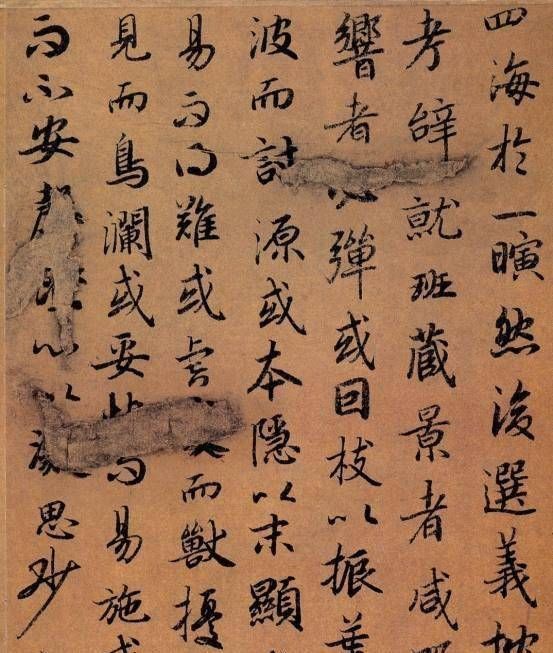 四海於一瞚然後選義
考辤就班藏景者咸
響者彈或回枝以振葉
波而討源或本隱以末顯
易而得難或虎而獸擾
見而鳥瀾或妥而易施
而不安心以思眇